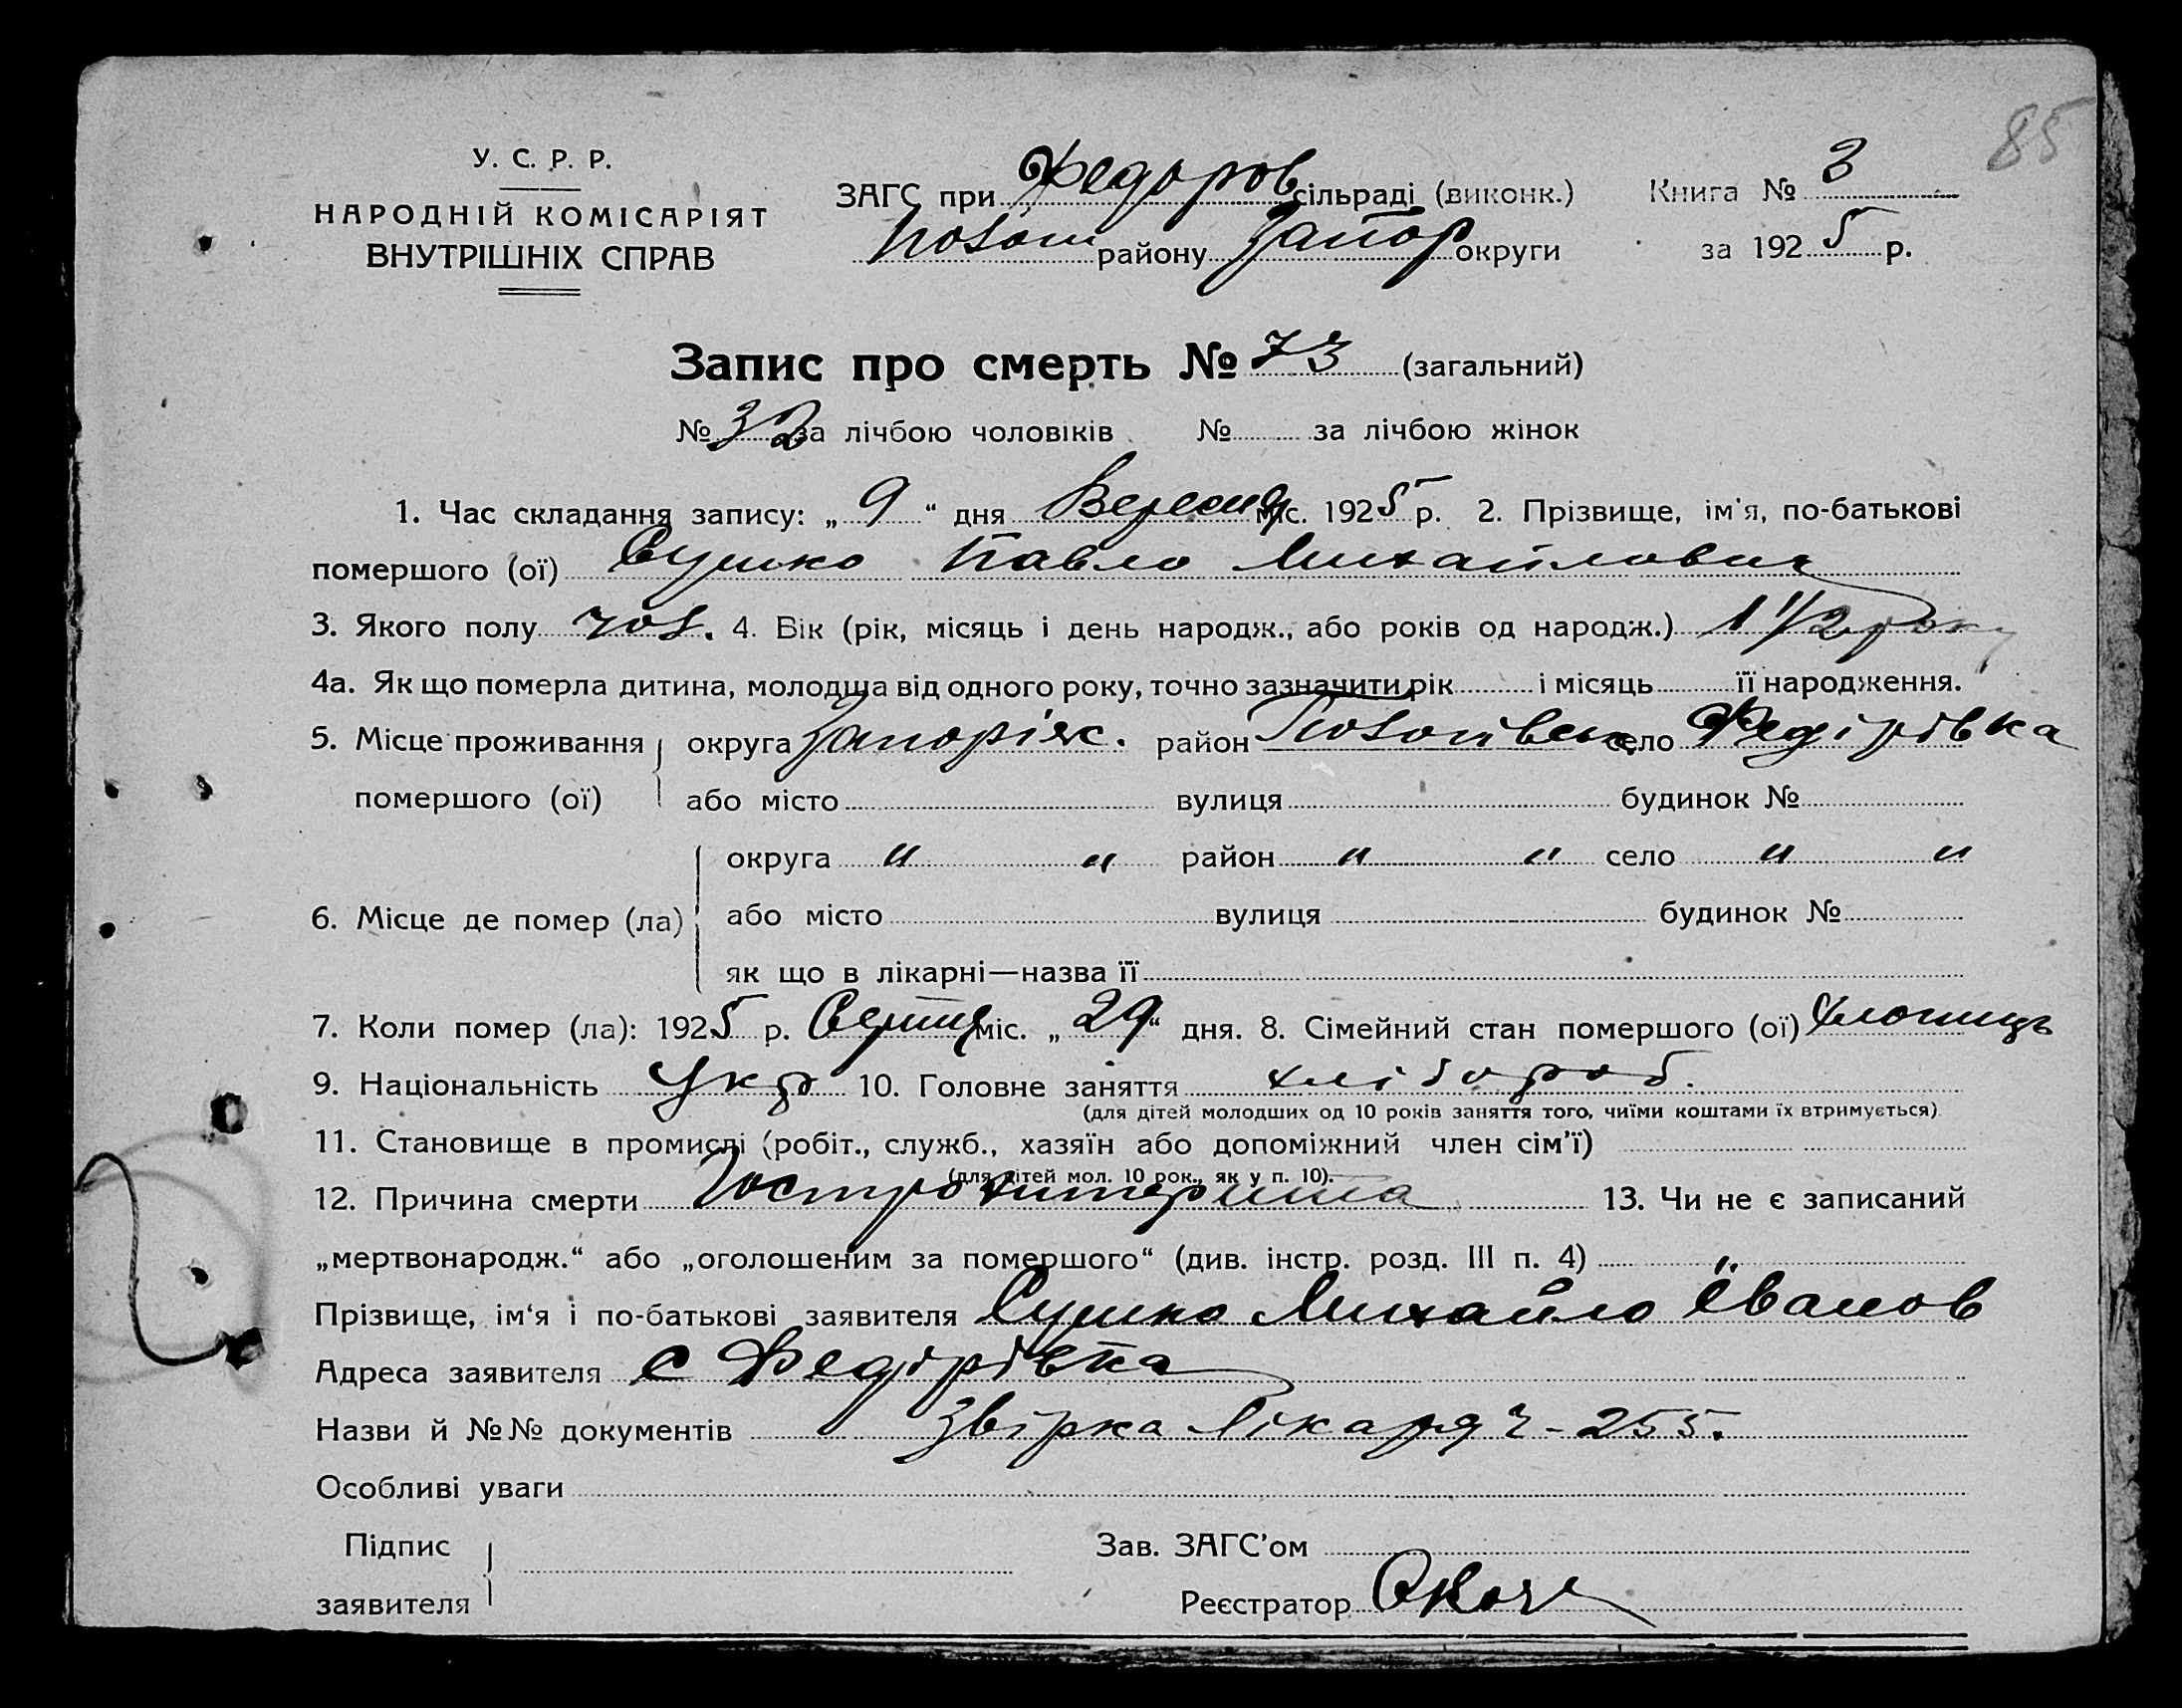 85
У. С. Р. Р.
НАРОДНІЙ КОМІСАРІЯТ
ВНУТРІШНІХ СПРАВ
ЗАГС при Федоров сільраді (виконк.)
району Запор округи
Книга № 3
за 1925 р.
Запис про смерть № 73 (загальний)
№ 32 за лічбою чоловіків № за лічбою жінок
1. Час складання запису: „ 9 “ дня Вересня міс. 1925 р. 2. Прізвище, ім'я, по-батькові
помершого (ої) Сушко Павло Михайлович
3. Якого полу чол. 4. Вік (рік, місяць і день народж., або років од народж.) 1 1/2 року
4а. Як що померла дитина, молодша від одного року, точно зазначити рік і місяць її народження.
5. Місце проживання округа Запоріж. район село Федірівка
помершого (ої) або місто вулиця будинок №
округа " " район " " село " "
6. Місце де помер (ла) або місто вулиця будинок №
як що в лікарні—назва її
7. Коли помер (ла): 1925 р. Серпня міс. „ 29 “ дня. 8. Сімейний стан помершого (ої) хлопиць
9. Національність Укр 10. Головне заняття хлібороб.
(для дітей молодших од 10 років заняття того, чиїми коштами їх втримується)
11. Становище в промислі (робіт., служб., хазяїн або допоміжний член сім'ї)
(для дітей мол. 10 рок., як у п. 10).
12. Причина смерти 13. Чи не є записаний
„мертвонародж.“ або „оголошеним за помершого“ (див. інстр. розд. III п. 4) "
Прізвище, ім‘я і по-батькові заявителя Сушко Михайло Іванов
Адреса заявителя с Федірівка
Назви й №№ документів Звірка Лікаря Ч-255.
Особливі уваги
Підпис
заявителя
Зав. ЗАГС'ом
Реєстратор